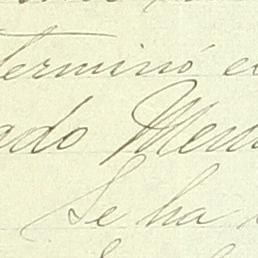 terminó e
ado Men
Se ha